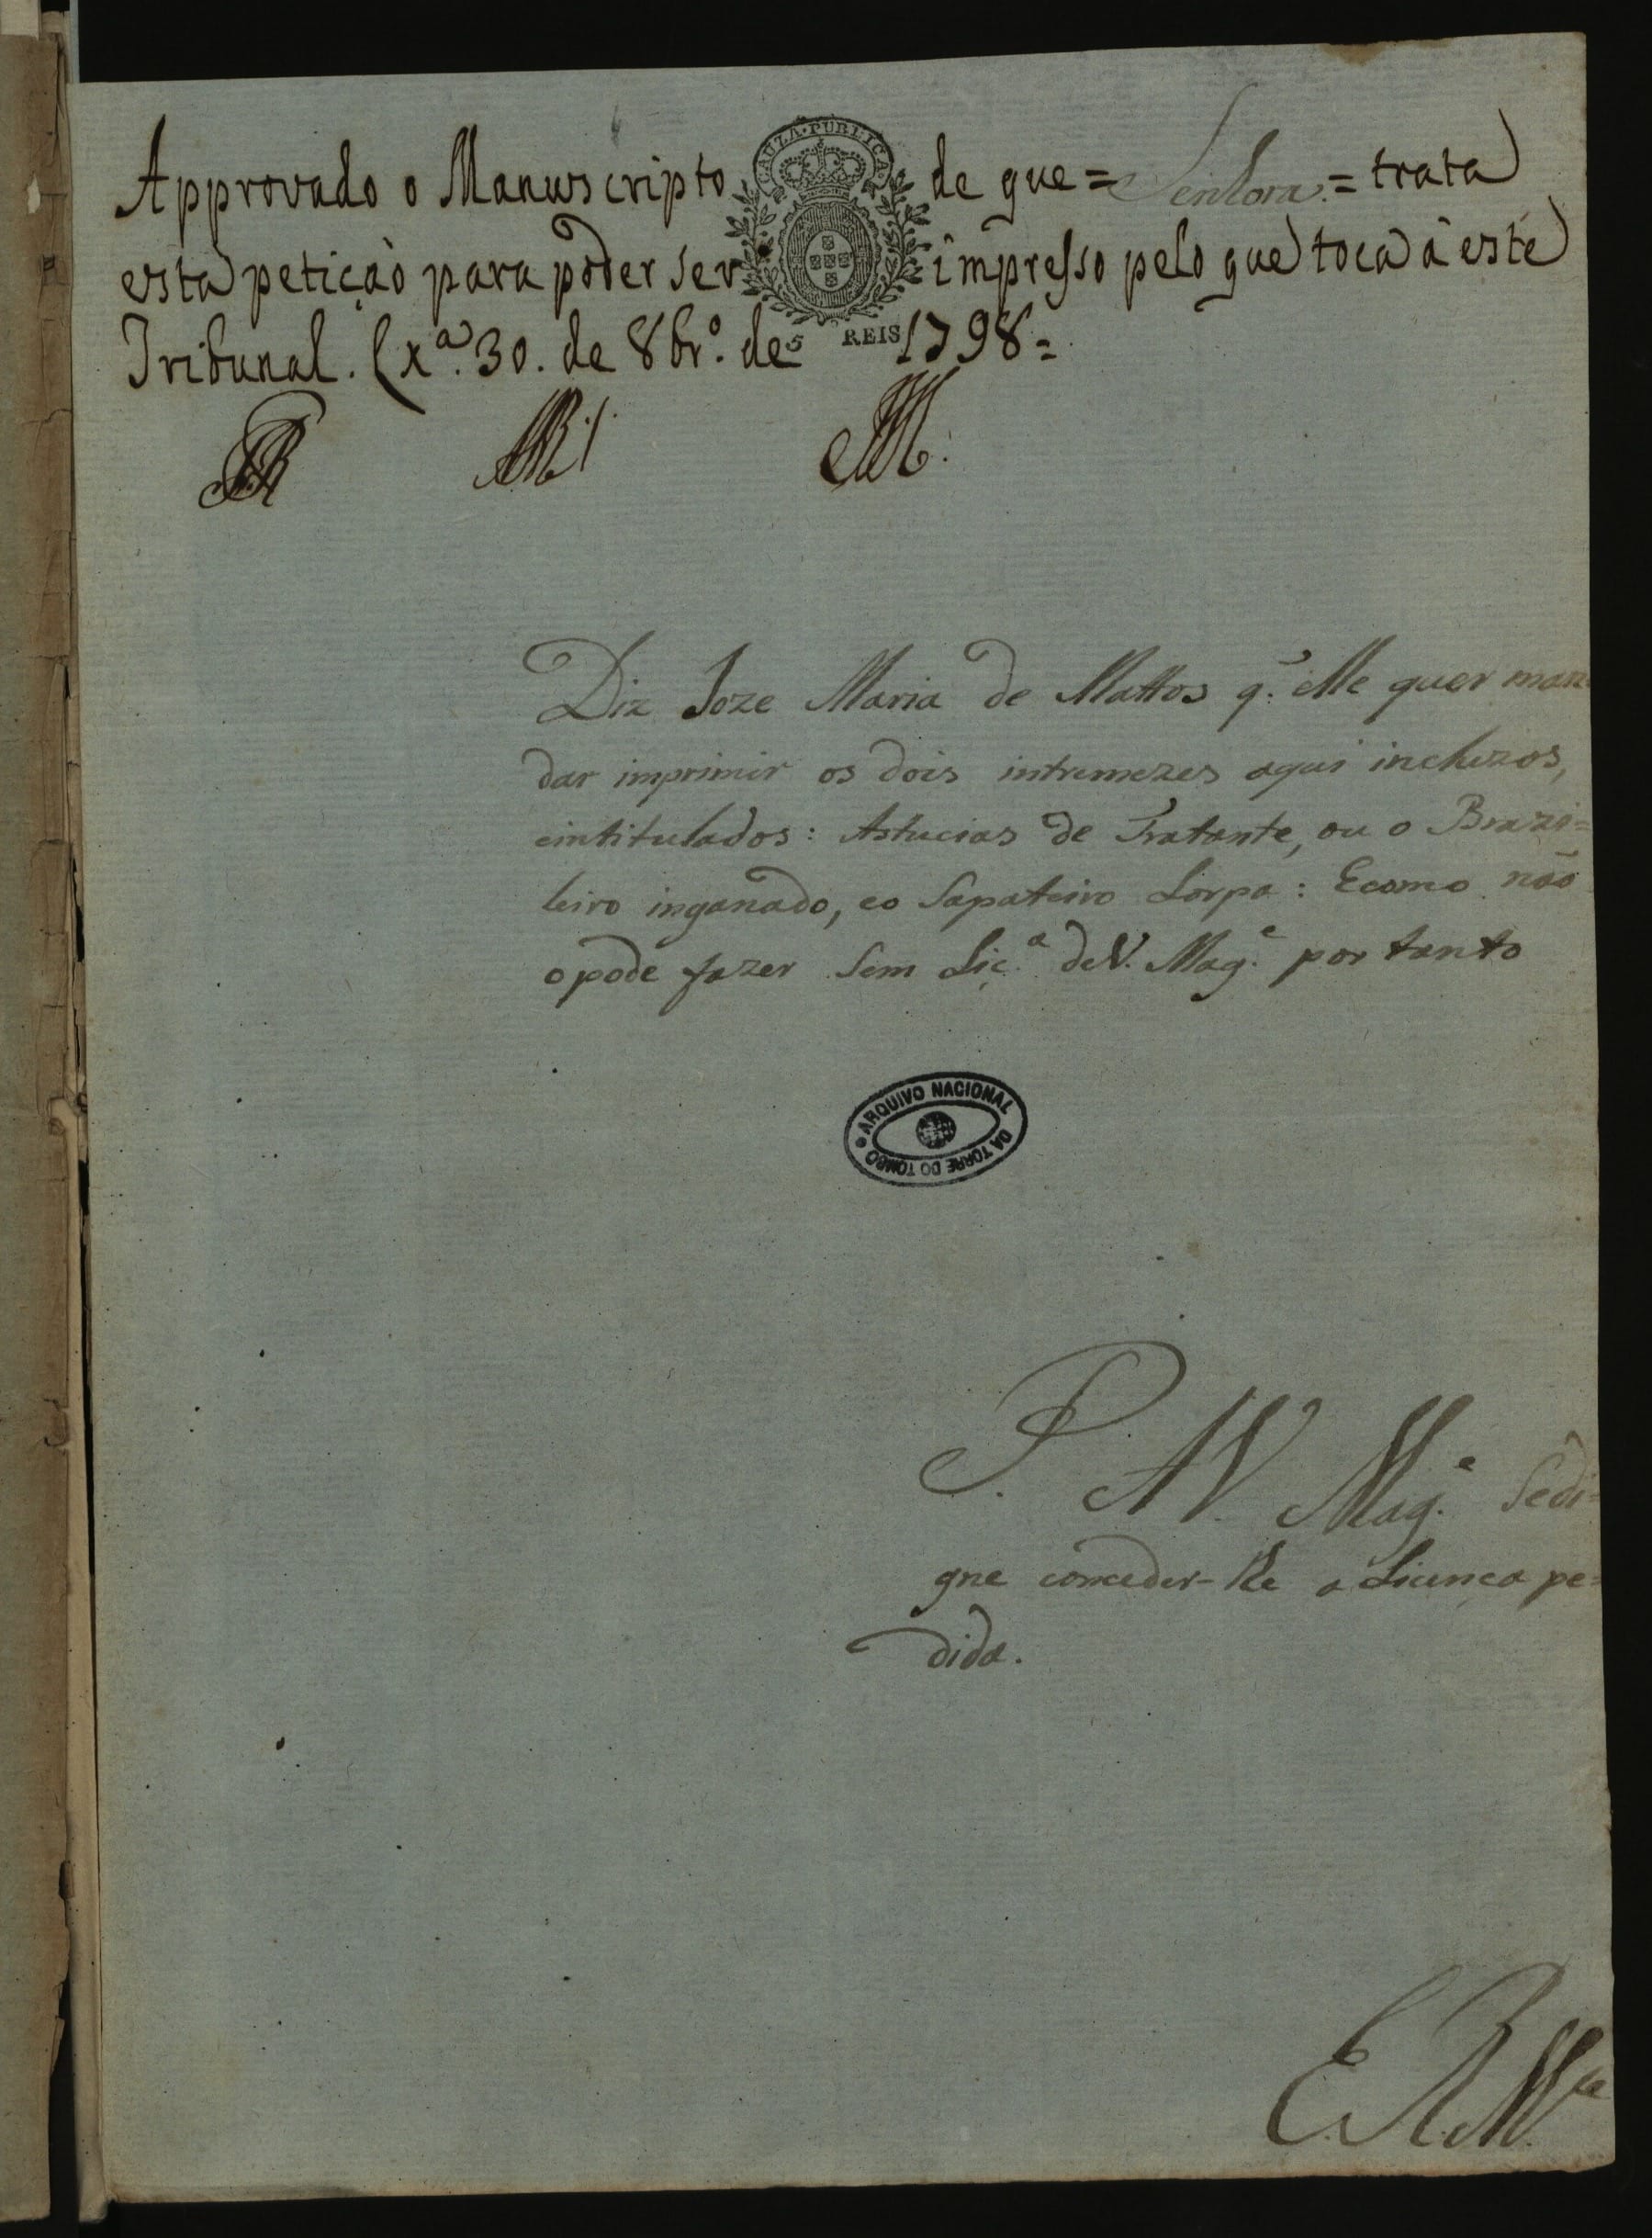 CAUZA·PUBLICA
Approvado o Manuscripto de que = Senhora. = trata
esta petiçaò para poder ser impresso pelo que toca â este
Tribunal. Lxª. 30. de 8brº. de 1798 =
5 REIS
Diz Joze Maria de Mattos q̃. elle quer man
dar imprimir os dois intremezes aqui incluzos,
eintitulados: Astucias de Tratante, ou o Brazi=
leiro inganado, eo Sapateiro Lorpa: Ecomo não
opode fazer Sem Liçª. deV. Magᵉ. por tanto
ARQUIVO NACIONAL DA TORRE DO TOMBO
P. AV. Magᵉ. Sedi=
gne conceder-lhe a Licença pe=
dida.
E. R. Mᶜᵉ